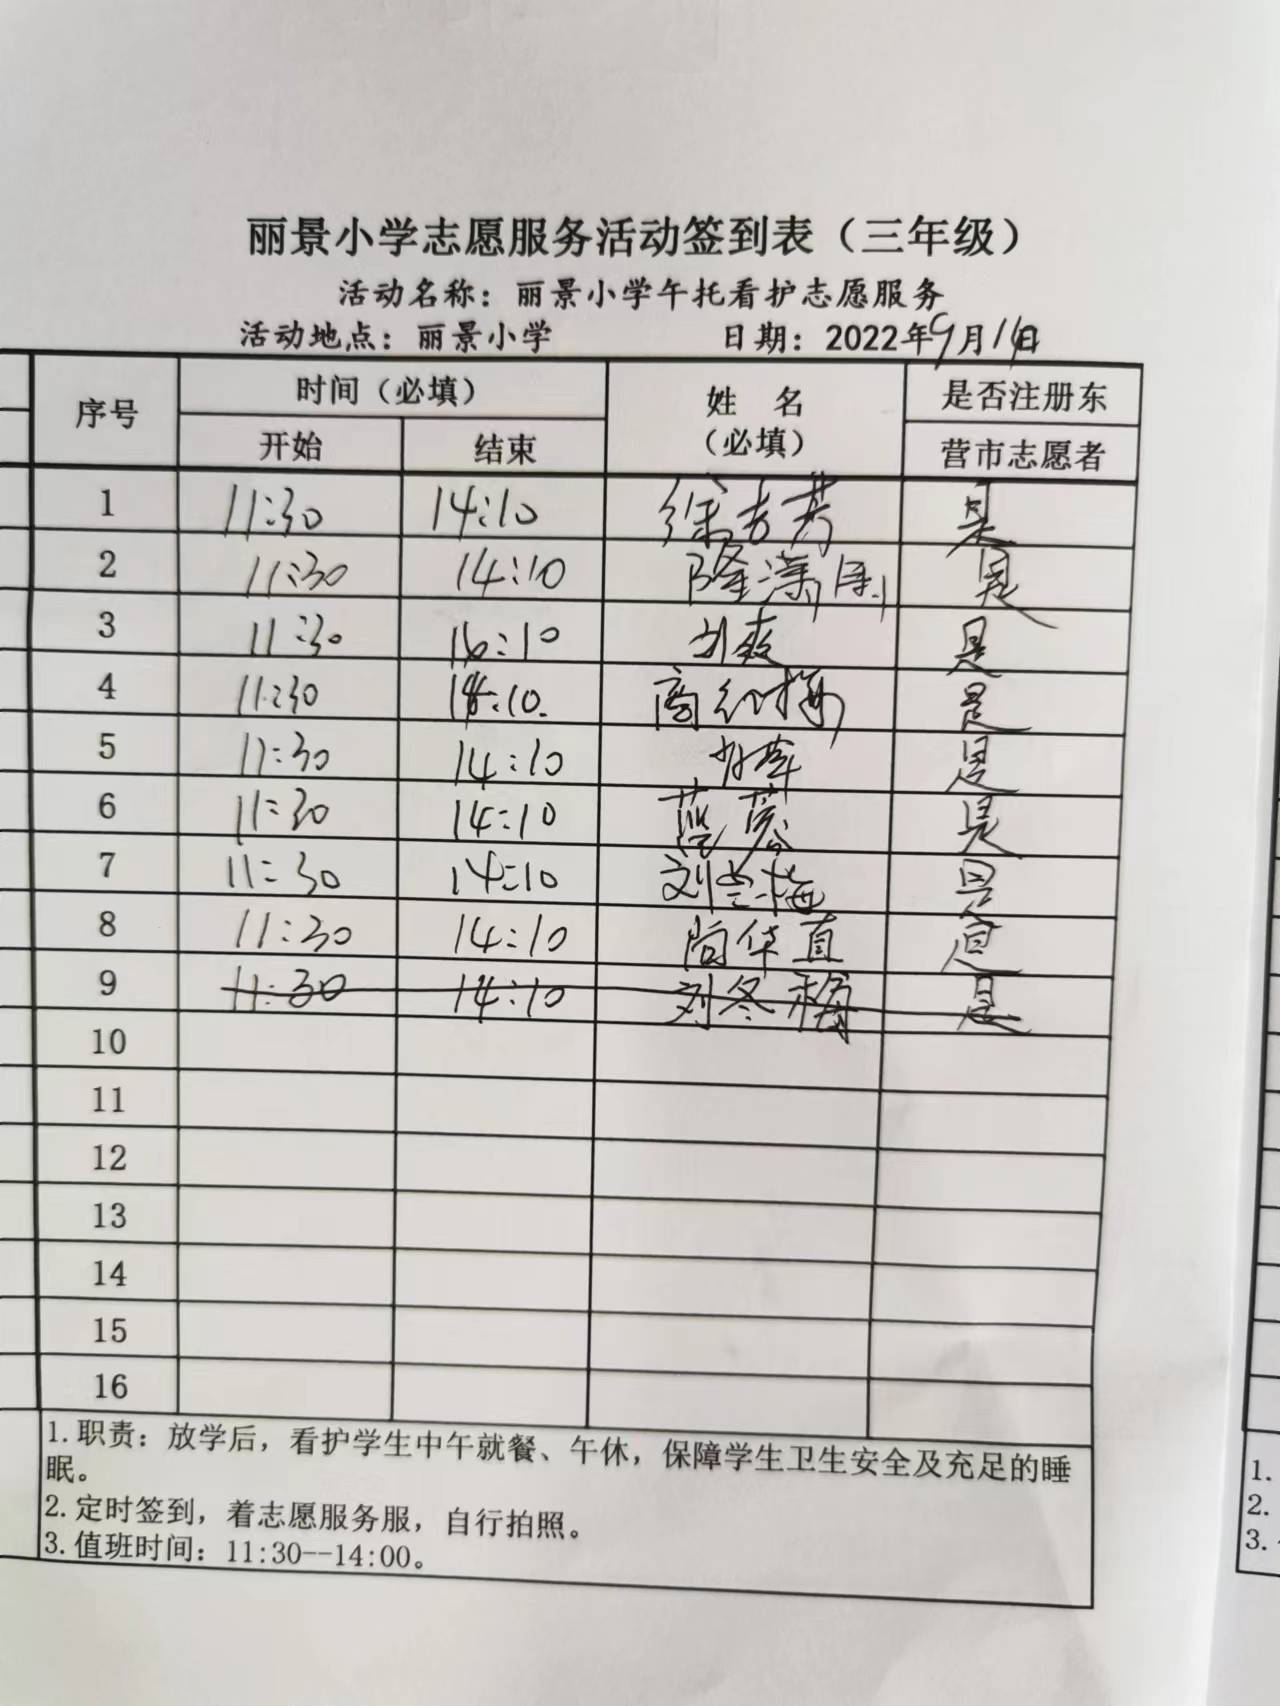 丽景小学志愿服务活动签到表（三年级）
活动名称：丽景小学午托看护志愿服务
活动地点：丽景小学 日期：2022年9月1日
序号 时间（必填） 姓 名 是否注册东
开始 结束 （必填） 营市志愿者
1 11:30 14:10 徐吉芳 是
2 11:30 14:10 隆潇 是
3 11:30 16:10 刘爽 是
4 11:30 14:10. 商 是
5 11:30 14:10 是
6 11:30 14:10 范蓉 是
7 11:30 14:10 刘兰梅 是
8 11:30 14:10 尚华直 是
9 11:30 14:10 刘冬梅 是
10
11
12
13
14
15
16
1.职责：放学后，看护学生中午就餐、午休，保障学生卫生安全及充足的睡
眠。
2.定时签到，着志愿服务服，自行拍照。
3.值班时间：11:30--14:00。
1.
2.
3.